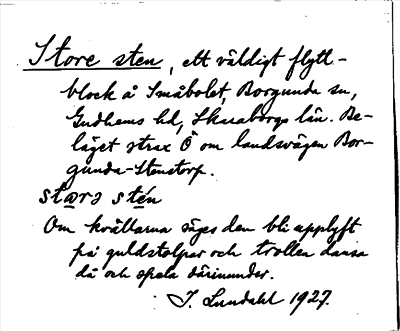 Store sten, ett väldigt flytt-
block å Småbolet, Borgunda sn,
Gudhems hd, Skaraborgs län. Be-
läget strax Ö om landsvägen Bor-
gunda-Stenstorp.
stơrɔ stén
Om kvällarna säges den bli upplyft
på guldstolpar och trollen dansa
då och spela därinunder.
J. Lundahl 1927.